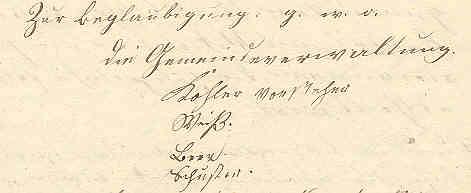 Zur Beglaubigung. g. w. o.
die Gemeindeverwaltung.
Kohler Vorsteher
Weiß.
Beer.
Schuster.